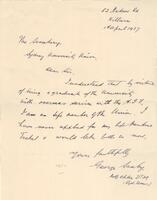 Killara
1st April 1937
The Secretary,
Sydney University Union
Dear Sir,
I understand that by virtue
of being a graduate of the University
with overseas service with the A.I.F.
I am a life member of the Union. I
have never applied for my life members
ticket & would like to do so now.
Yours faithfully
George